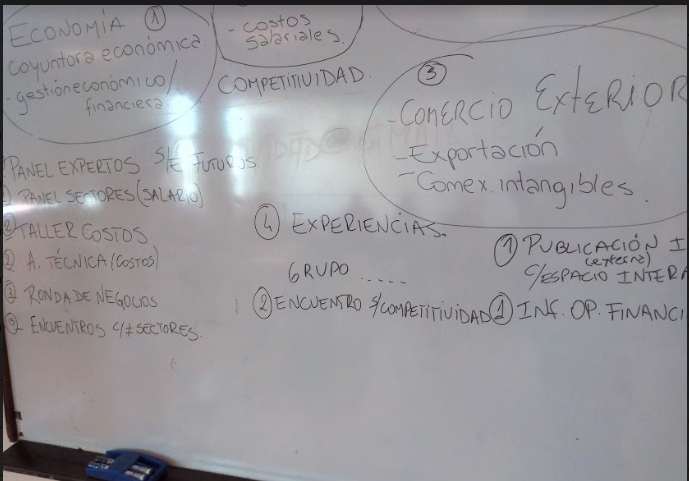 ECONOMÍA ①
coyuntora económica.
- gestión económico/
financiera.
- costos
salariales.
COMPETITIVIDAD.
③
- COMERCIO EXTERIOR
- Exportación
- Comex. intangibles.
PANEL EXPERTOS S/E FUTUROS
PANEL SECTORES (SALARIO)
② TALLER COSTOS
② A. TÉCNICA (COSTOS)
③ RONDA DE NEGOCIOS
② ENCUENTROS C/≠ SECTORES.
④ EXPERIENCIAS.
GRUPO .....
② ENCUENTRO S/COMPETITIVIDAD
① PUBLICACIÓN I
(externa)
C/ESPACIO INTERA
① INF. OP. FINANCI